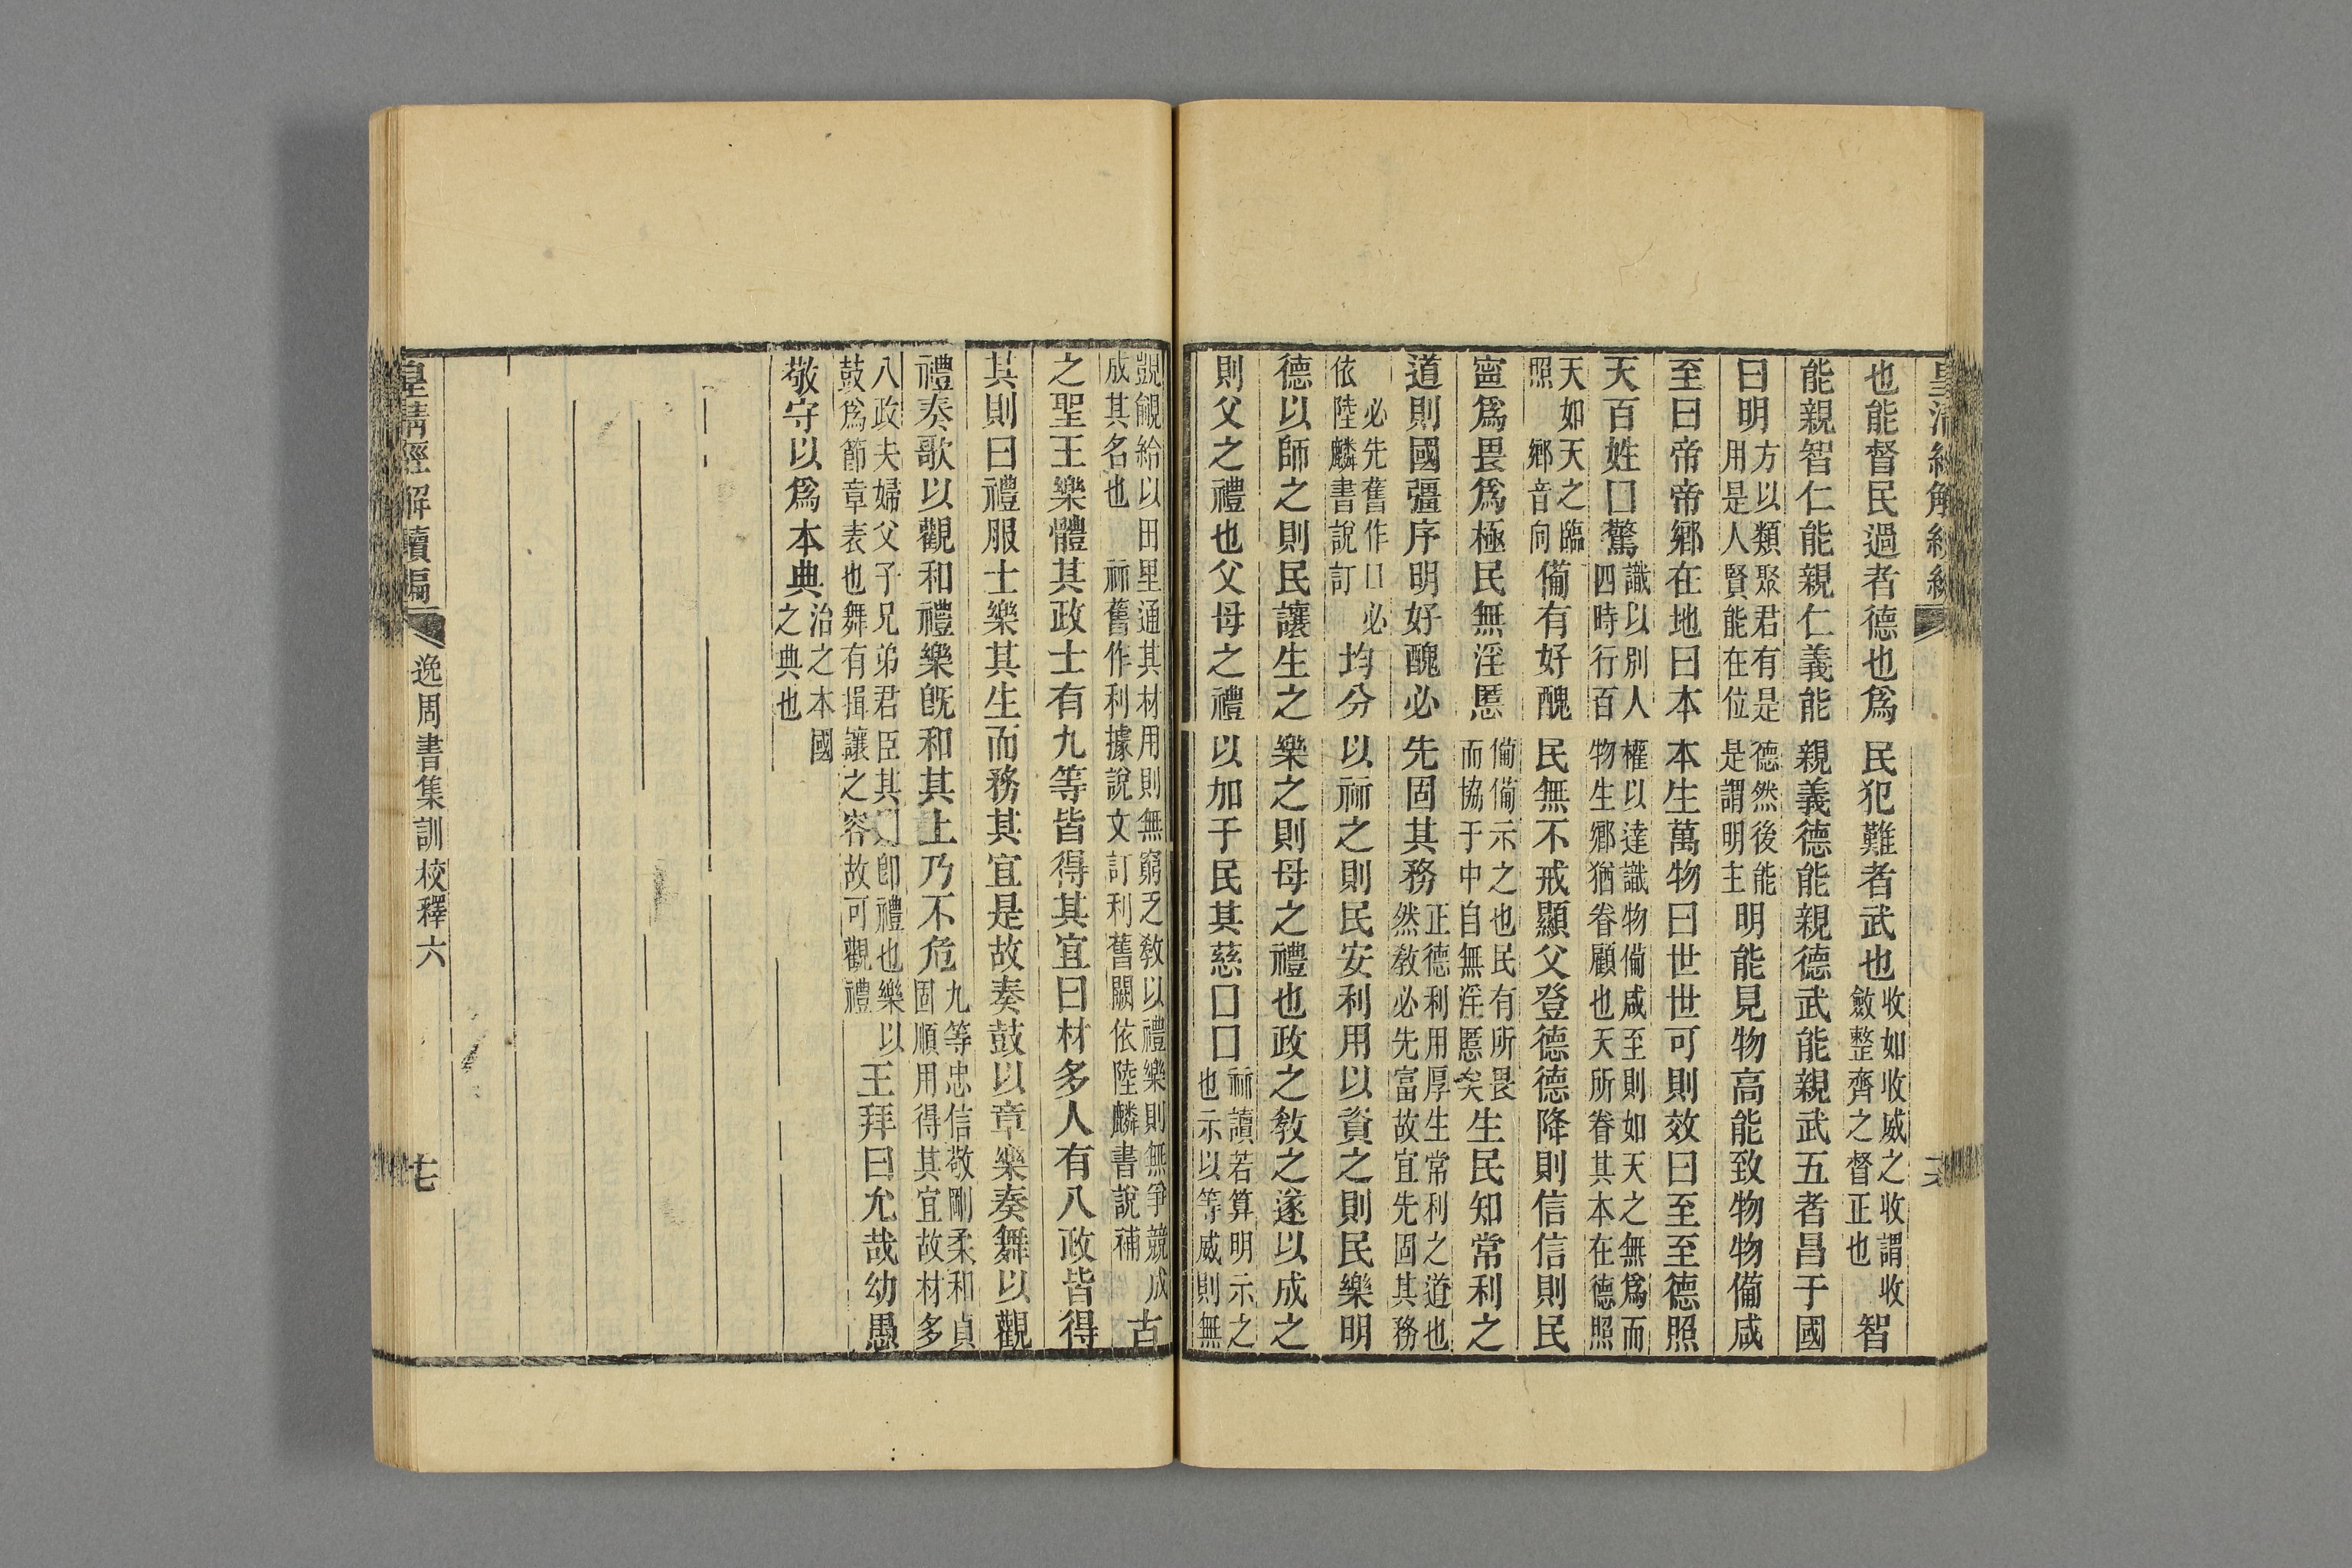 也能督民過者德也爲民犯難者武也收如收威之收謂收斂整齊之督正也智
能親智仁能親仁義能親義德能親德武能親武五者昌于國
曰明方以類聚君有是德然後能用是人賢能在位是謂明主明能見物高能致物物備咸
至曰帝帝鄉在地曰本本生萬物曰世世可則效曰至至德照
天百姓囗驚識以別人權以達識物備咸至則如天之無爲而四時行百物生鄉猶眷顧也天所眷其本在德照
天如天之臨照鄉音向備有好醜民無不戒顯父登德德降則信信則民
寍爲畏爲極民無淫慝備備示之也民有所畏而協于中自無淫慝矣生民知常利之
道則國彊序明好醜必先固其務正德利用厚生常利之道也然敎必先富故宜先固其務
必先舊作囗必依陸麟書說訂均分以祘之則民安利用以資之則民樂明
德以師之則民讓生之樂之則母之禮也政之敎之遂以成之
則父之禮也父母之禮以加于民其慈囗囗祘讀若算明示之也示以等威則無
覬覦給以田里通其材用則無窮乏敎以禮樂則無爭競成成其名也祘舊作利據說文訂利舊闕依陸麟書說補古
之聖王樂體其政士有九等皆得其宜曰材多人有八政皆得
其則曰禮服士樂其生而務其宜是故奏鼓以章樂奏舞以觀
禮奏歌以觀和禮樂旣和其上乃不危九等忠信敬剛柔和貞固順用得其宜故材多
八政夫婦父子兄弟君臣其則卽禮也樂以鼓爲節章表也舞有揖讓之容故可觀禮王拜曰允哉幼愚
敬守以爲本典治之本國之典也
皇淸經解續編 逸周書集訓校釋六 十七